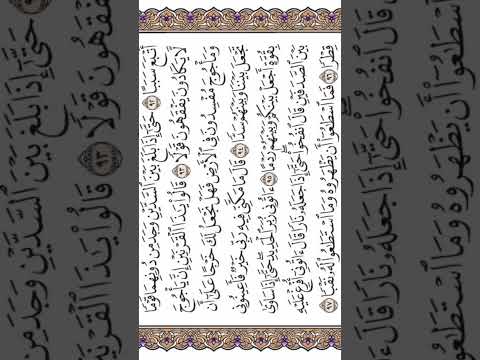 أَتْبَعَ سَبَبًا ٩٢ حَتَّىٰٓ إِذَا بَلَغَ بَيْنَ ٱلسَّدَّيْنِ وَجَدَ مِن دُونِهِمَا قَوْمًا
لَّا يَكَادُونَ يَفْقَهُونَ قَوْلًا ٩٣ قَالُوا۟ يَٰذَا ٱلْقَرْنَيْنِ إِنَّ يَأْجُوجَ
وَمَأْجُوجَ مُفْسِدُونَ فِى ٱلْأَرْضِ فَهَلْ نَجْعَلُ لَكَ خَرْجًا عَلَىٰٓ أَن
تَجْعَلَ بَيْنَنَا وَبَيْنَهُمْ سَدًّا ٩٤ قَالَ مَا مَكَّنِّى فِيهِ رَبِّى خَيْرٌ فَأَعِينُونِى
بِقُوَّةٍ أَجْعَلْ بَيْنَكُمْ وَبَيْنَهُمْ رَدْمًا ٩٥ ءَاتُونِى زُبَرَ ٱلْحَدِيدِ حَتَّىٰٓ إِذَا سَاوَىٰ
بَيْنَ ٱلصَّدَفَيْنِ قَالَ ٱنفُخُوا۟ حَتَّىٰٓ إِذَا جَعَلَهُۥ نَارًا قَالَ ءَاتُونِىٓ أُفْرِغْ عَلَيْهِ
قِطْرًا ٩٦ فَمَا ٱسْطَٰعُوٓا۟ أَن يَظْهَرُوهُ وَمَا ٱسْتَطَٰعُوا۟ لَهُۥ نَقْبًا ٩٧